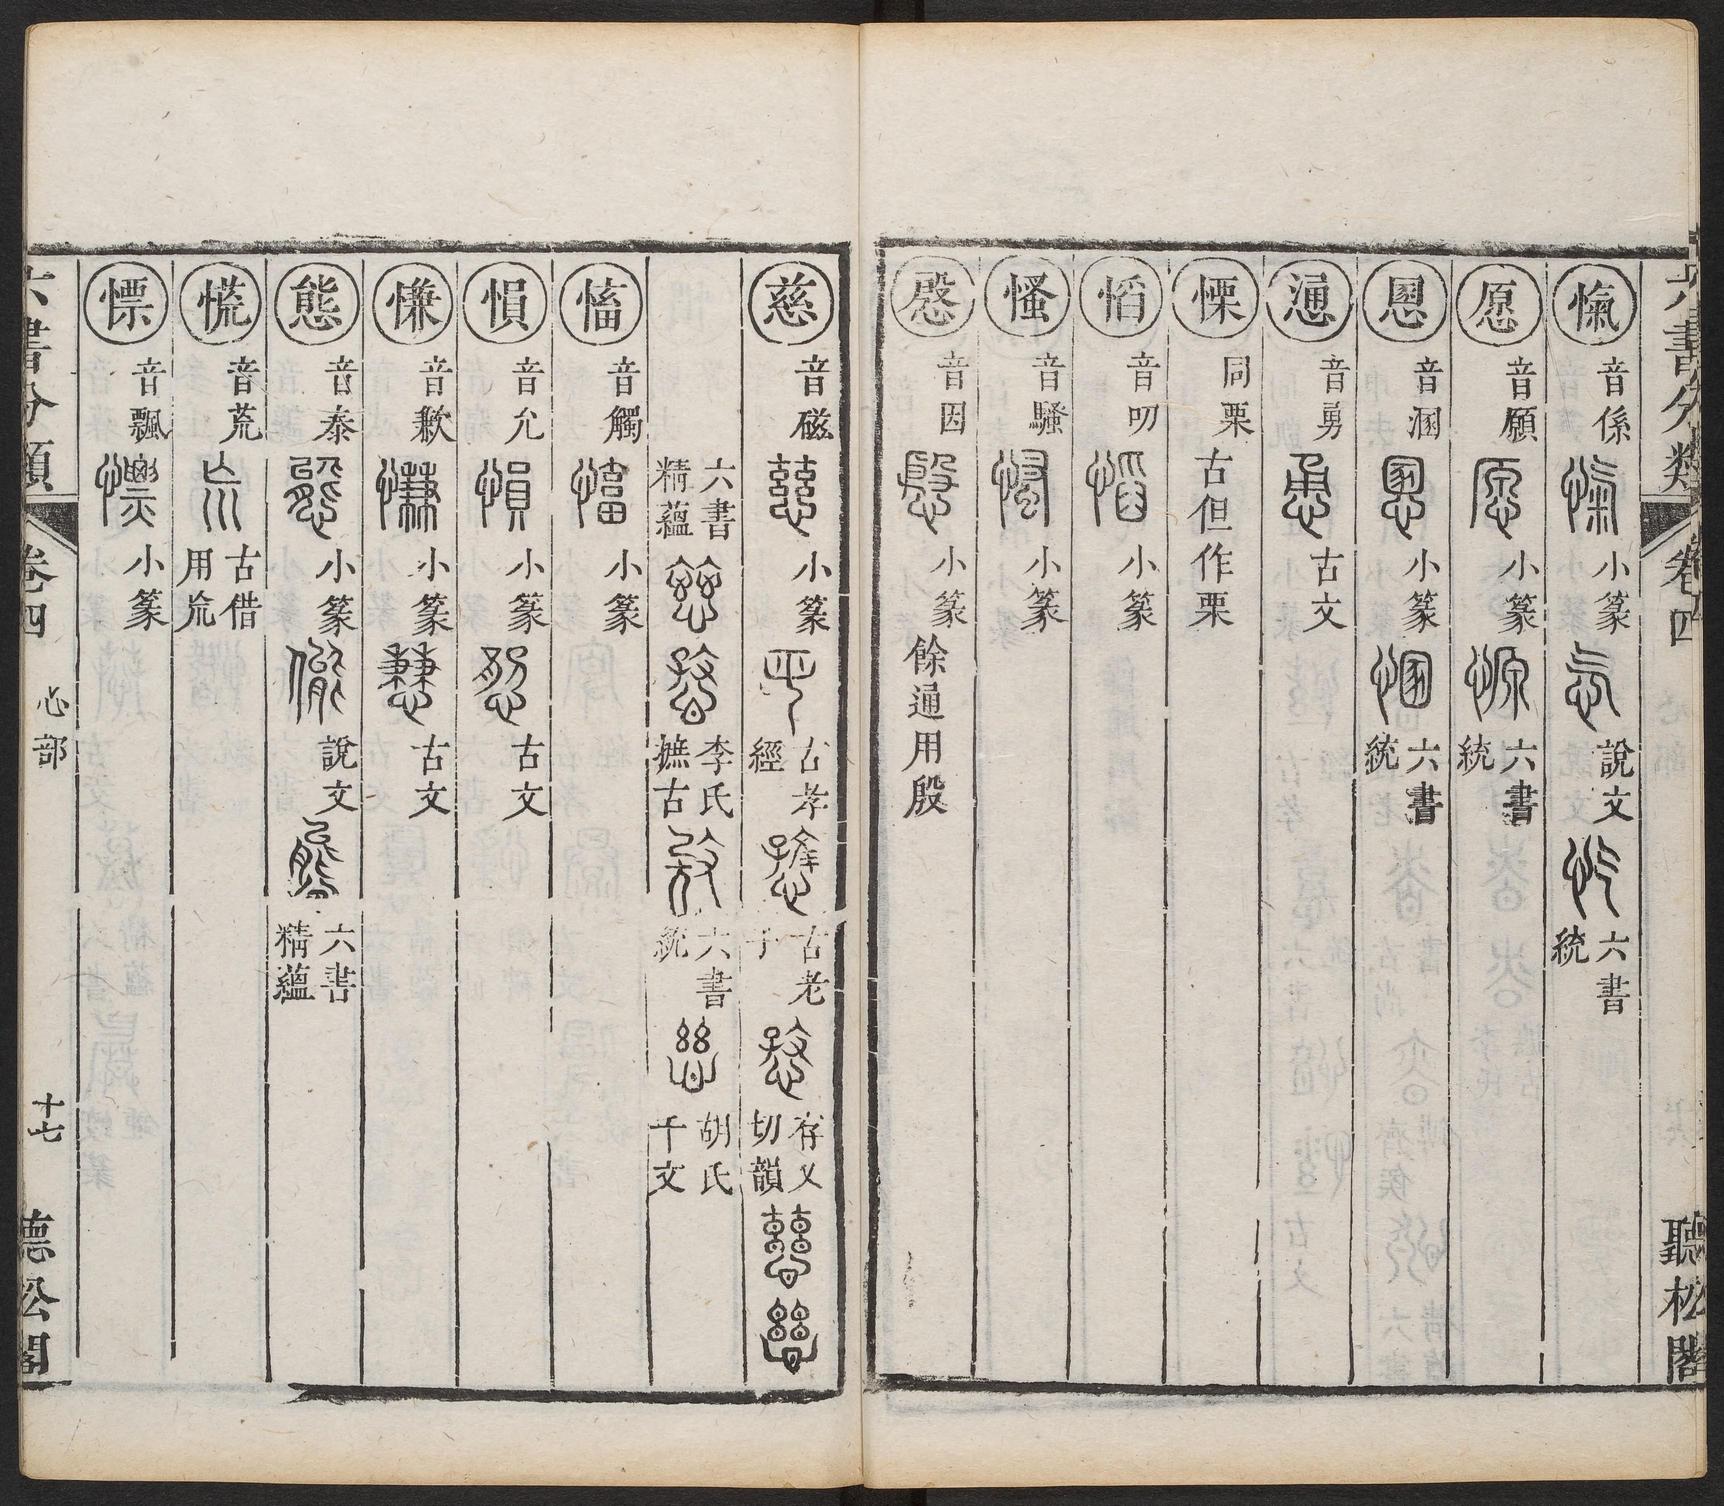 六書分類 卷四 聽松閣
愾 音係 小篆 說文 六書統
愿 音願 小篆 六書統
慁 音溷 小篆 六書統
慂 音勇 古文
慄 同栗 古但作栗
慆 音叨 小篆
慅 音騷 小篆
慇 音因 小篆 餘通用殷
慈 音磁 小篆 古孝經 古老子 存乂切韻
六書精蘊 李氏摭古 六書統 胡氏千文
慉 音觸 小篆
愪 音允 小篆 古文
慊 音歉 小篆 古文
態 音泰 小篆 說文 六書精蘊
慌 音荒 古借用㡃
慓 音飄 小篆
六書分類 卷四 心部 十七 聽松閣